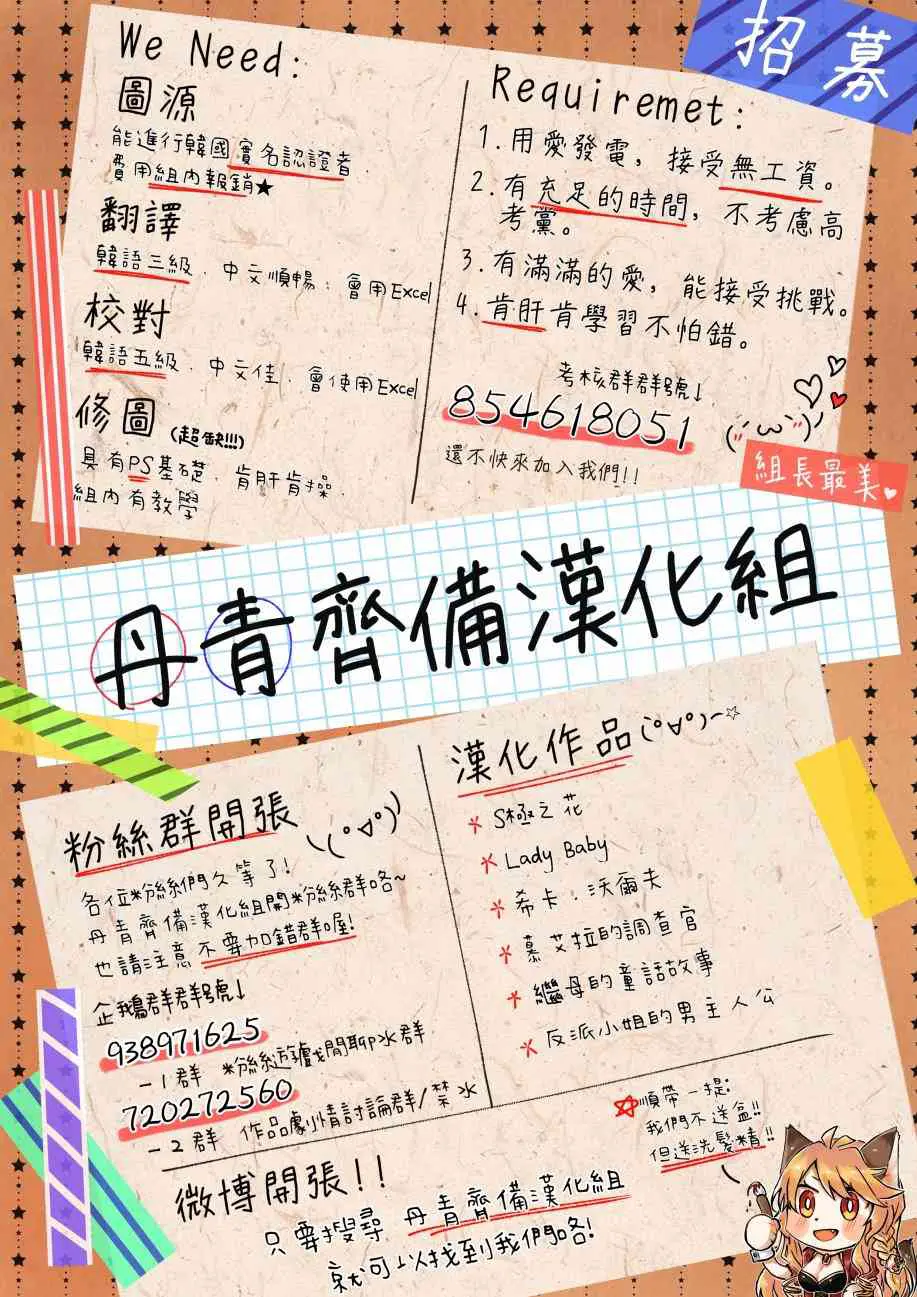 招募
We Need:
圖源
能進行韓國實名認證者
費用組內報銷★
翻譯
韓語三級．中文順暢；會用Excel
校對
韓語五級．中文佳．會使用Excel
修圖(超缺!!!)
具有PS基礎．肯肝肯操．
組內有教學
Requiremet:
1.用愛發電，接受無工資。
2.有充足的時間，不考慮高
考黨。
3.有滿滿的愛，能接受挑戰。
4.肯肝肯學習不怕錯。
考核群群號↓
854618051
還不快來加入我們!!
組長最美♥
丹青齊備漢化組
粉絲群開張
各位粉絲們久等了!
丹青齊備漢化組開粉絲群咯~
也請注意不要加錯群喔!
企鵝群群號↓
938971625
-1群 粉絲遊戲閒聊水群
720272560
-2群 作品劇情討論群/禁水
漢化作品(°∀°)⌒☆
* S極之花
* Lady Baby
* 希卡．沃爾夫
* 慕艾拉的調查官
* 繼母的童話故事
* 反派小姐的男主人公
☆順帶一提:
我們不送盒!!
但送洗髮精!!
微博開張!!
只要搜尋 丹青齊備漢化組
就可以找到我們咯!